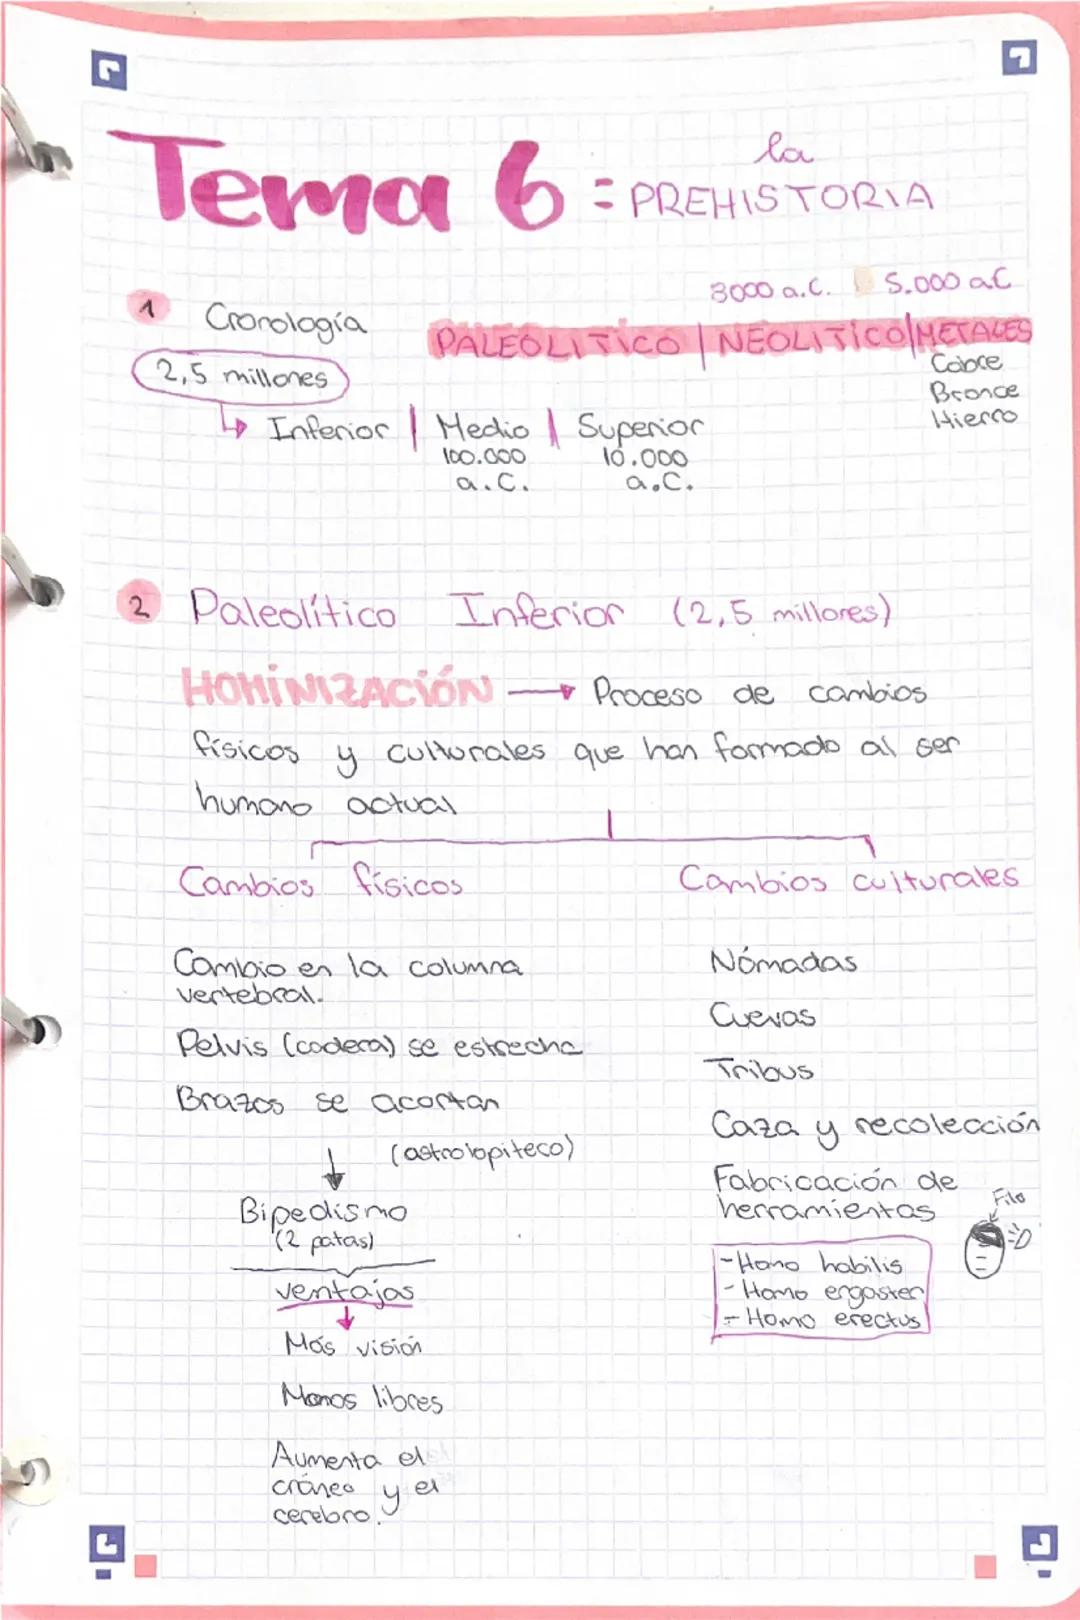 Tema 6 = la PREHISTORIA
3000 a.C. 5.000 a.C
1 Cronología
PALEOLITICO | NEOLITICO | METALES
2,5 millones
Cobre
Bronce
Hierro
Inferior | Medio | Superior
100.000 10.000
a.C. a.C.
2 Paleolítico Inferior (2,5 millones)
HOMINIZACIÓN → Proceso de cambios
físicos y culturales que han formado al ser
humano actual
Cambios físicos
Cambio en la columna
vertebral.
Pelvis (cadera) se estrecha
Brazos se acortan
(astrolopiteco)
Bipedismo
(2 patas)
ventajas
Más visión
Manos libres
Aumenta el
cráneo y el
cerebro.
Cambios culturales
Nómadas
Cuevas
Tribus
Caza y recolección
Fabricación de
herramientas
Filo
- Homo habilis
- Homo ergaster
- Homo erectus